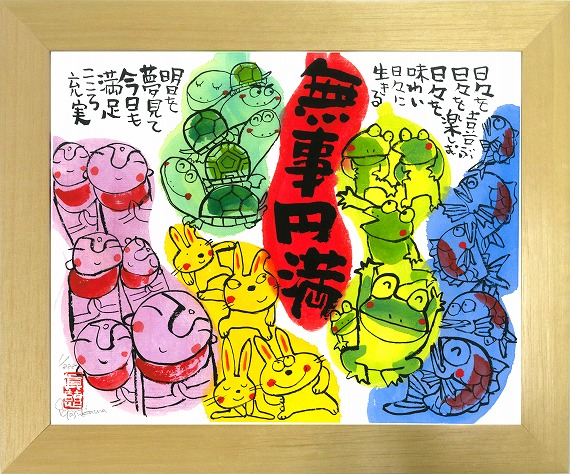 日々を喜ぶ
日々を楽しむ
日々を
味わい
日々に
生きる
無事円満
明日を
夢見て
今日も
満足
こころ
充実